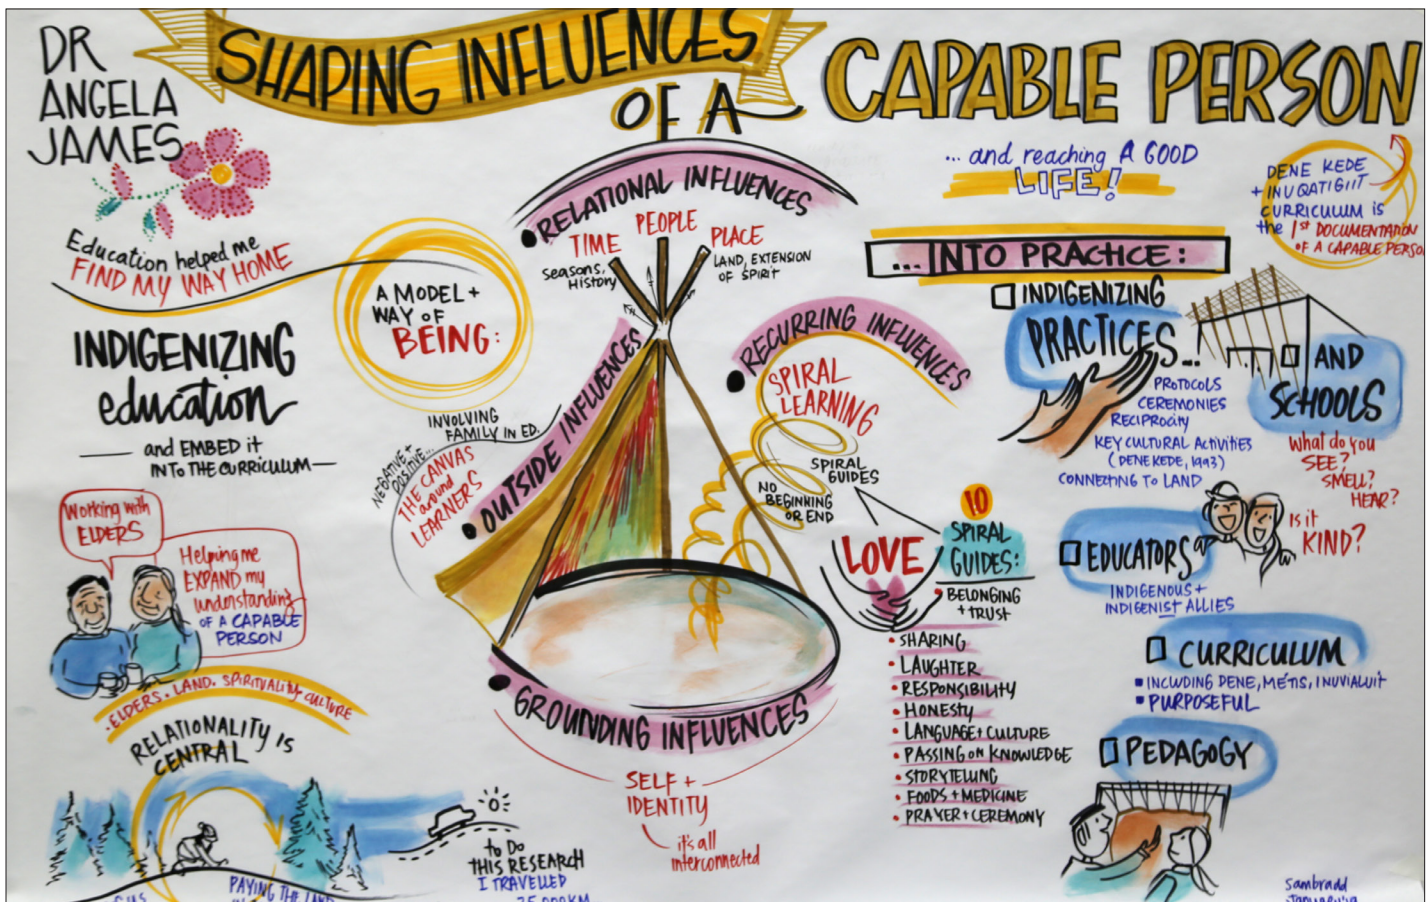 DR
ANGELA
JAMES
SHAPING INFLUENCES
OF A
CAPABLE PERSON
... and reaching A GOOD
LIFE!
DENE KEDE
+ INUQATIGIIT
CURRICULUM is
the 1st DOCUMENTATION
OF A CAPABLE PERSON
Education helped me
FIND MY WAY HOME
INDIGENIZING
education
and EMBED it
INTO THE CURRICULUM
Working with
ELDERS
Helping me
EXPAND my
understanding
OF A CAPABLE
PERSON
ELDERS. LAND. SPIRITUALITY. CULTURE
RELATIONALITY IS
CENTRAL
PAYING THE LAND
to DO
THIS RESEARCH
I TRAVELLED
A MODEL +
WAY OF
BEING:
RELATIONAL INFLUENCES
TIME
seasons,
History
PEOPLE
PLACE
LAND, EXTENSION
OF SPIRIT
OUTSIDE INFLUENCES
INVOLVING
FAMILY IN ED.
NEGATIVE +
POSITIVE...
THE CANVAS
around
LEARNERS
RECURRING INFLUENCES
SPIRAL
LEARNING
SPIRAL
GUIDES
NO
BEGINNING
OR END
LOVE
10
SPIRAL
GUIDES:
• BELONGING
+ TRUST
• SHARING
• LAUGHTER
• RESPONSIBILITY
• HONESTY
• LANGUAGE + CULTURE
• PASSING ON KNOWLEDGE
• STORYTELLING
• FOODS + MEDICINE
• PRAYER + CEREMONY
GROUNDING INFLUENCES
SELF +
IDENTITY
it's all
interconnected
... INTO PRACTICE:
INDIGENIZING
PRACTICES...
PROTOCOLS
CEREMONIES
RECIPROCITY
KEY CULTURAL ACTIVITIES
(DENE KEDE, 1993)
CONNECTING TO LAND
AND
SCHOOLS
What do you
SEE?
SMELL?
HEAR?
Is it
KIND?
EDUCATORS
INDIGENOUS +
INDIGENIST ALLIES
CURRICULUM
INCLUDING DENE, MÉTIS, INUVIALUIT
PURPOSEFUL
PEDAGOGY
Sambradd